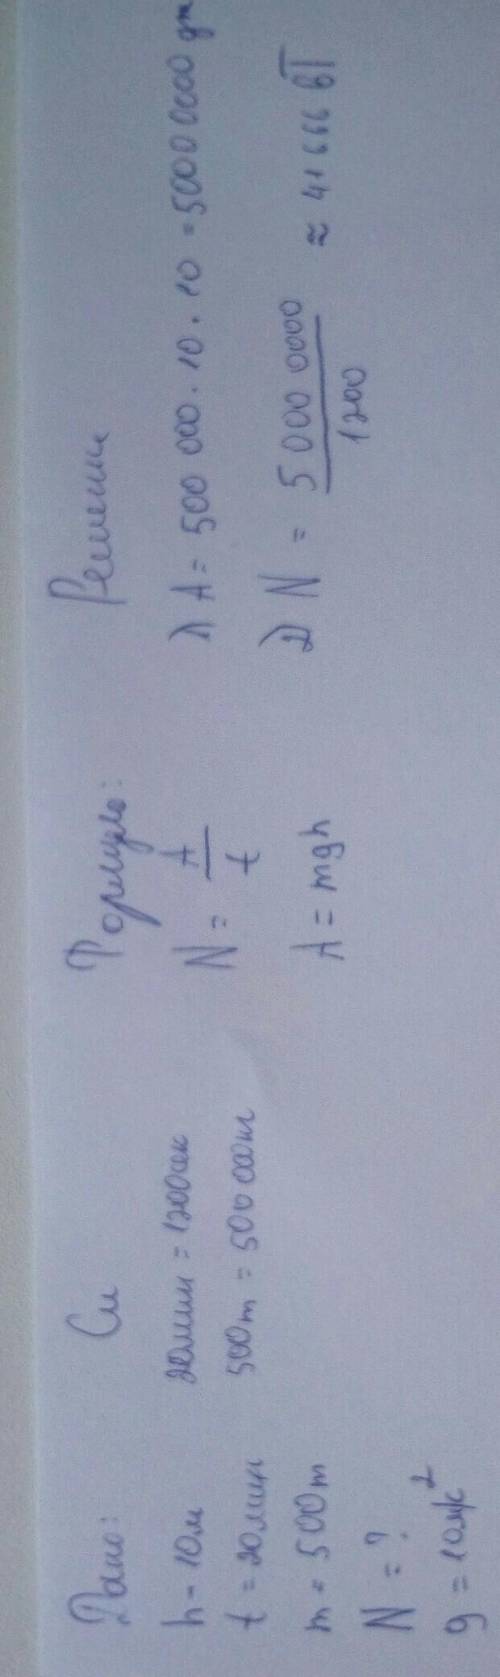 Дано:
h - 10м
t = 20мин
m = 500т
N = ?
g = 10м/с²
Си
20мин = 1200сек
500т = 500 000кг
Формула:
N = A/t
A = mgh
Решение
1) A = 500 000 . 10 . 10 = 5000 0000 дж
2) N = 5 000 0000/1200 ≈ 41 666 ВТ